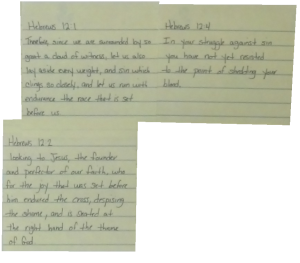 Hebrews 12:1
Therefore, since we are surrounded by so
great a cloud of witness, let us also
lay aside every weight, and sin which
clings so closely, and let us run with
endurance the race that is set
before us
Hebrews 12:4
In your struggle against sin
you have not yet resisted
to the point of shedding your
blood.
Hebrews 12:2
looking to Jesus, the founder
and perfecter of our faith, who
for the joy that was set before
him endured the cross, despising
the shame, and is seated at
the right hand of the throne
of God